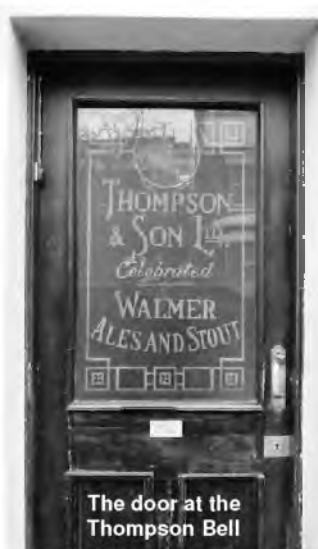 THOMPSON
& SON LTD.
Celebrated
WALMER
ALES AND STOUT
The door at the
Thompson Bell